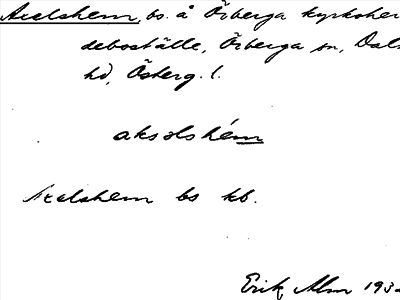 Axelshem, bs. å Örberga kyrkoher
deboställe, Örberga sn, Dals
hd, Österg. l.
aksəlshém
Axelshem bs kb.
Erik Alm 193